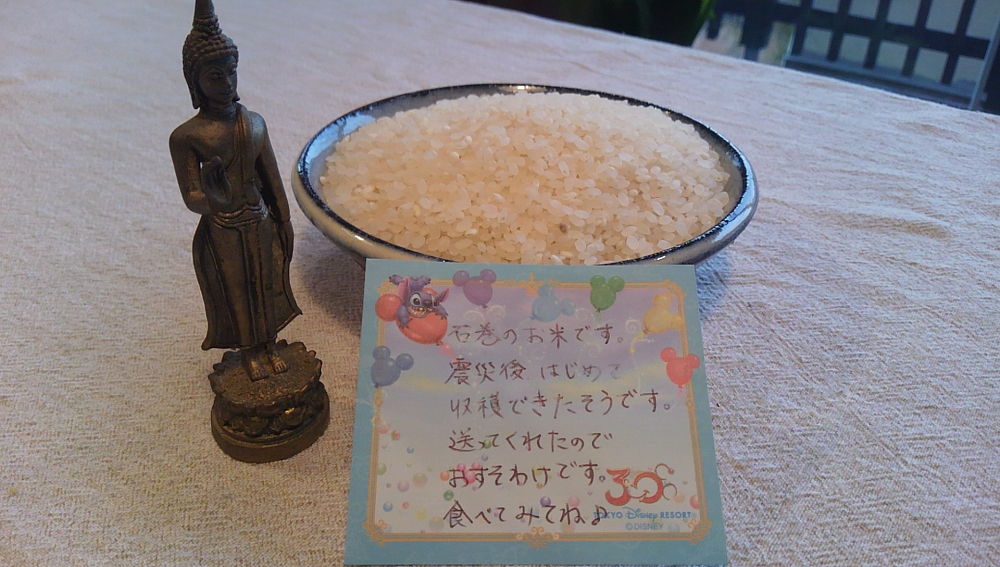 石巻のお米です。
震災後はじめて
収穫できたそうです。
送ってくれたので
おすそわけです。
食べてみてね♪
30th
TOKYO Disney RESORT
©DISNEY